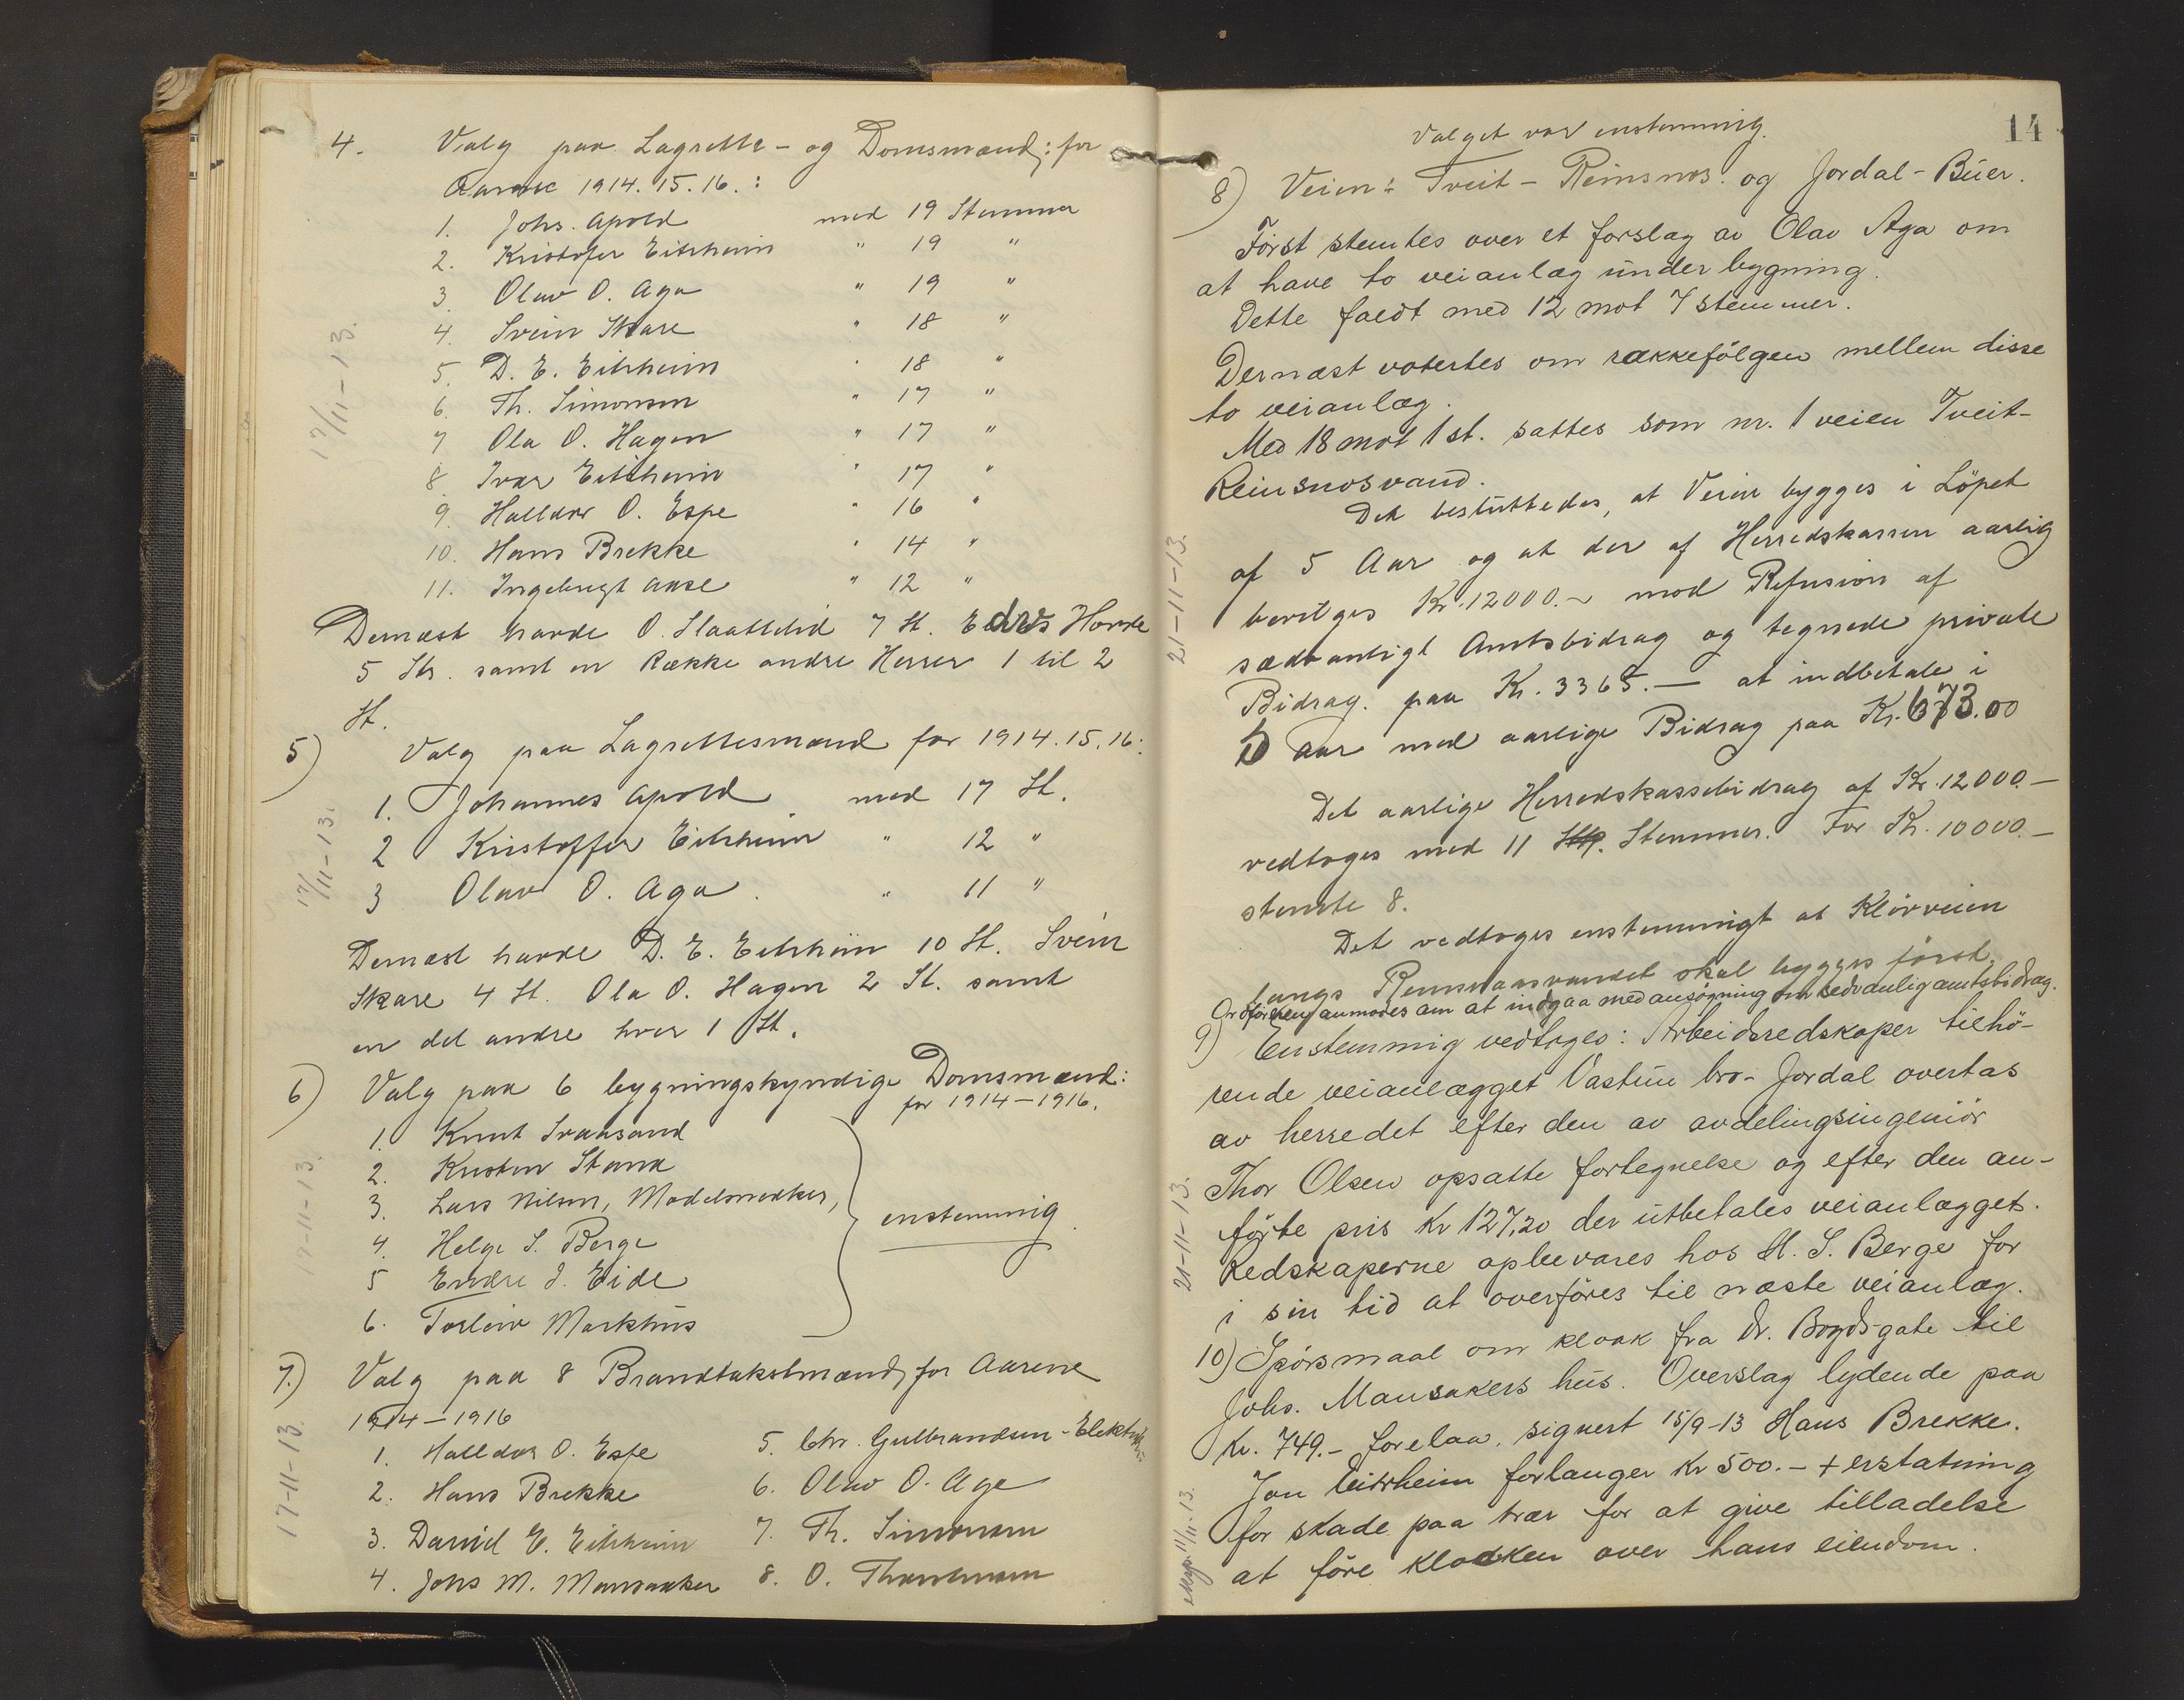 4. Valg paa Lagrette- og Domsmænd: for
Aarene 1914. 15. 16. :
1. Johs. Apold med 19 Stemmer
2. Kristofer Eitrheim " 19 "
3. Olav O. Aga " 19 "
4. Svein Skare " 18 "
5. D. E. Eitrheim " 18 "
6. Th. Simonsen " 17 "
7 Ola O. Hagen " 17 "
8. Ivar Eitrheim " 17 "
9. Halldor O. Espe " 16 "
10. Hans Brekke " 14 "
11. Ingebrigt Aase " 12 "
17/11-13.
Dernæst havde O. Slaattelid 7 St. Hovde
5 St. samt en Række andre Herrer 1 til 2
St.
5) Valg paa Lagrettesmænd for 1914. 15. 16:
1. Johannes Apold med 17 St.
2 Kristoffer Eitrheim " 12 "
3 Olav O. Aga. " 11 "
17/11-13.
Dernæst havde D. E. Eitrheim 10 St. Svein
Skare 4 St. Ola O. Hagen 2 St. samt
en del andre hver 1 St.
6) Valg paa 6 bygningskyndige Domsmænd:
for 1914-1916.
1. Knut Svaasand
2. Kristen Stana
3. Lars Nilsen, Modelsnedker,
4. Helge S. Berge
5 Endre J. Eide
6. Torleiv Markhus
enstemmig
17-11-13.
7.) Valg paa 8 Brandtakstmænd for Aarene
1914-1916
1. Halldor O. Espe
2. Hans Brekke
3. David E. Eitrheim
4. Johs M. Mannsaaker
5. Chr. Gulbrandsen -
6. Olav O. Aga
7. Th. Simonsen
8. O.
17-11-13.
14
Valget var enstemmig.
8) Veien: Tveit - Reinsnos. og Jordal - Buer.
Først stemtes over et forslag av Olav Aga om
at have to veianlæg under bygning.
Dette faldt med 12 mot 7 stemmer.
Dernæst votertes om rækkefölgen mellem disse
to veianlæg.
Med 18 mot 1 st. sattes som nr. 1 veien Tveit-
Reinsnosvand.
Det besluttedes, at Veien bygges i Löpet
af 5 Aar og at der af Herredskassen aarlig
bevilges Kr. 12000.- mod Refusion af
sædvanligt Amtsbidrag og tegnede private
Bidrag. paa Kr. 3365.— at indbetale i
5 Aar med aarlige Bidrag paa Kr. 673.00
21-11-13.
Det aarlige Herredskassebidrag af Kr. 12000.-
vedtoges med 11 Stemmer. For Kr. 10000.-
stemte 8.
Det vedtoges enstemmigt at Klövveien
langs Reinsnaasvandet skal bygges först.
Ordføreren anmodes om at indgaa med ansøgning om sedvanlig amtsbidrag.
9) Enstemmig vedtoges: Arbeidsredskaper tilhö-
rende veianlægget Vastun bro - Jordal overtas
av herredet efter den av avdelingsingeniör
Thor Olsen opsatte fortegnelse og efter den an-
förte pris Kr 127,20 der utbetales veianlægget.
Redskaperne opbevares hos H. S. Berge for
i sin tid at overföres til næste veianlæg.
21-11-13.
10) Spörsmaal om kloak fra Dr. Bogds gate til
Johs. Mansakers hus. Overslag lydende paa
Kr. 749.- forelaa, signert 15/9-13 Hans Brekke.
Jon Eitrheim forlanger Kr 500.- + erstatning
for skade paa trær for at give tilladelse
at före kloakken over hans eiendom.
11/11.13.